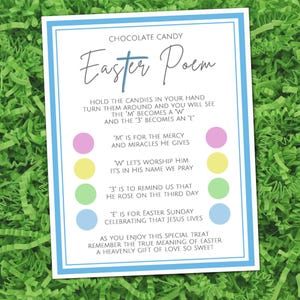 CHOCOLATE CANDY
Easter Poem
HOLD THE CANDIES IN YOUR HAND
TURN THEM AROUND AND YOU WILL SEE
THE "M" BECOMES A "W"
AND THE "3" BECOMES AN "E"
"M" IS FOR THE MERCY
AND MIRACLES HE GIVES
"W" LET'S WORSHIP HIM
IT'S IN HIS NAME WE PRAY
"3" IS TO REMIND US THAT
HE ROSE ON THE THIRD DAY
"E" IS FOR EASTER SUNDAY
CELEBRATING THAT JESUS LIVES
AS YOU ENJOY THIS SPECIAL TREAT
REMEMBER THE TRUE MEANING OF EASTER
A HEAVENLY GIFT OF LOVE SO SWEET